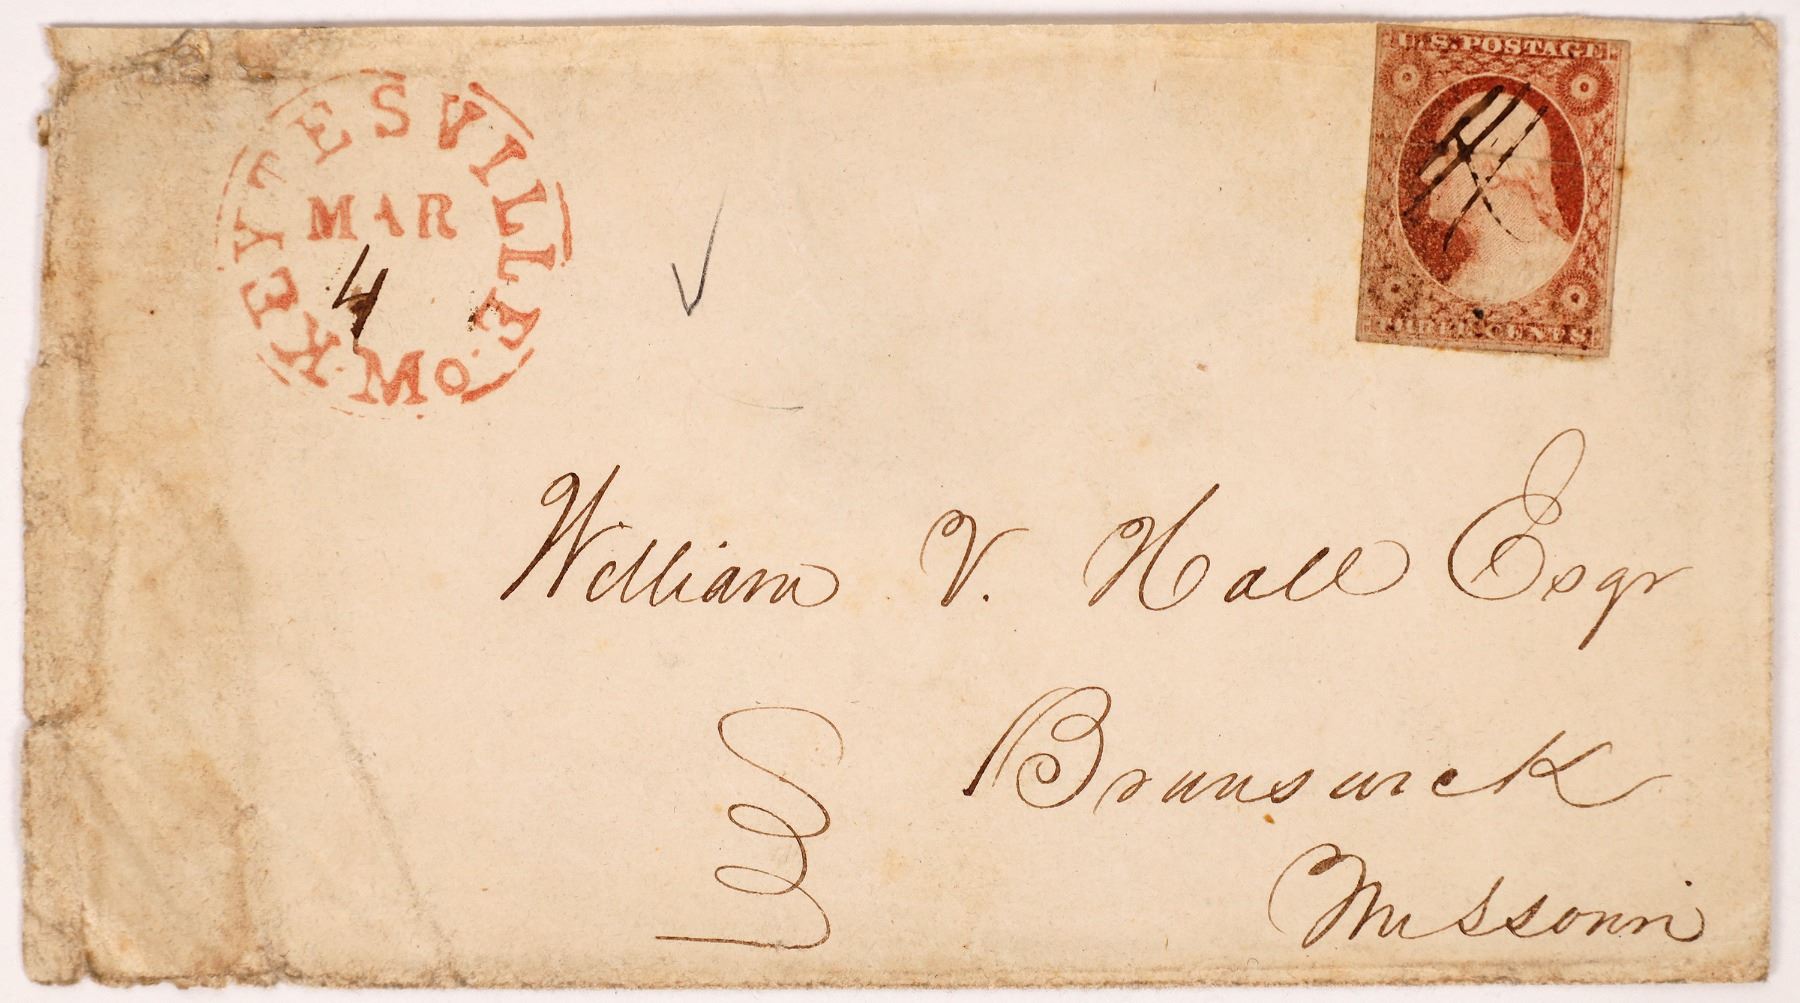 KEYTESVILLE Mo.
MAR
4
U.S. POSTAGE
THREE CENTS
William V. Hall Esqr
Brunswick
Missouri